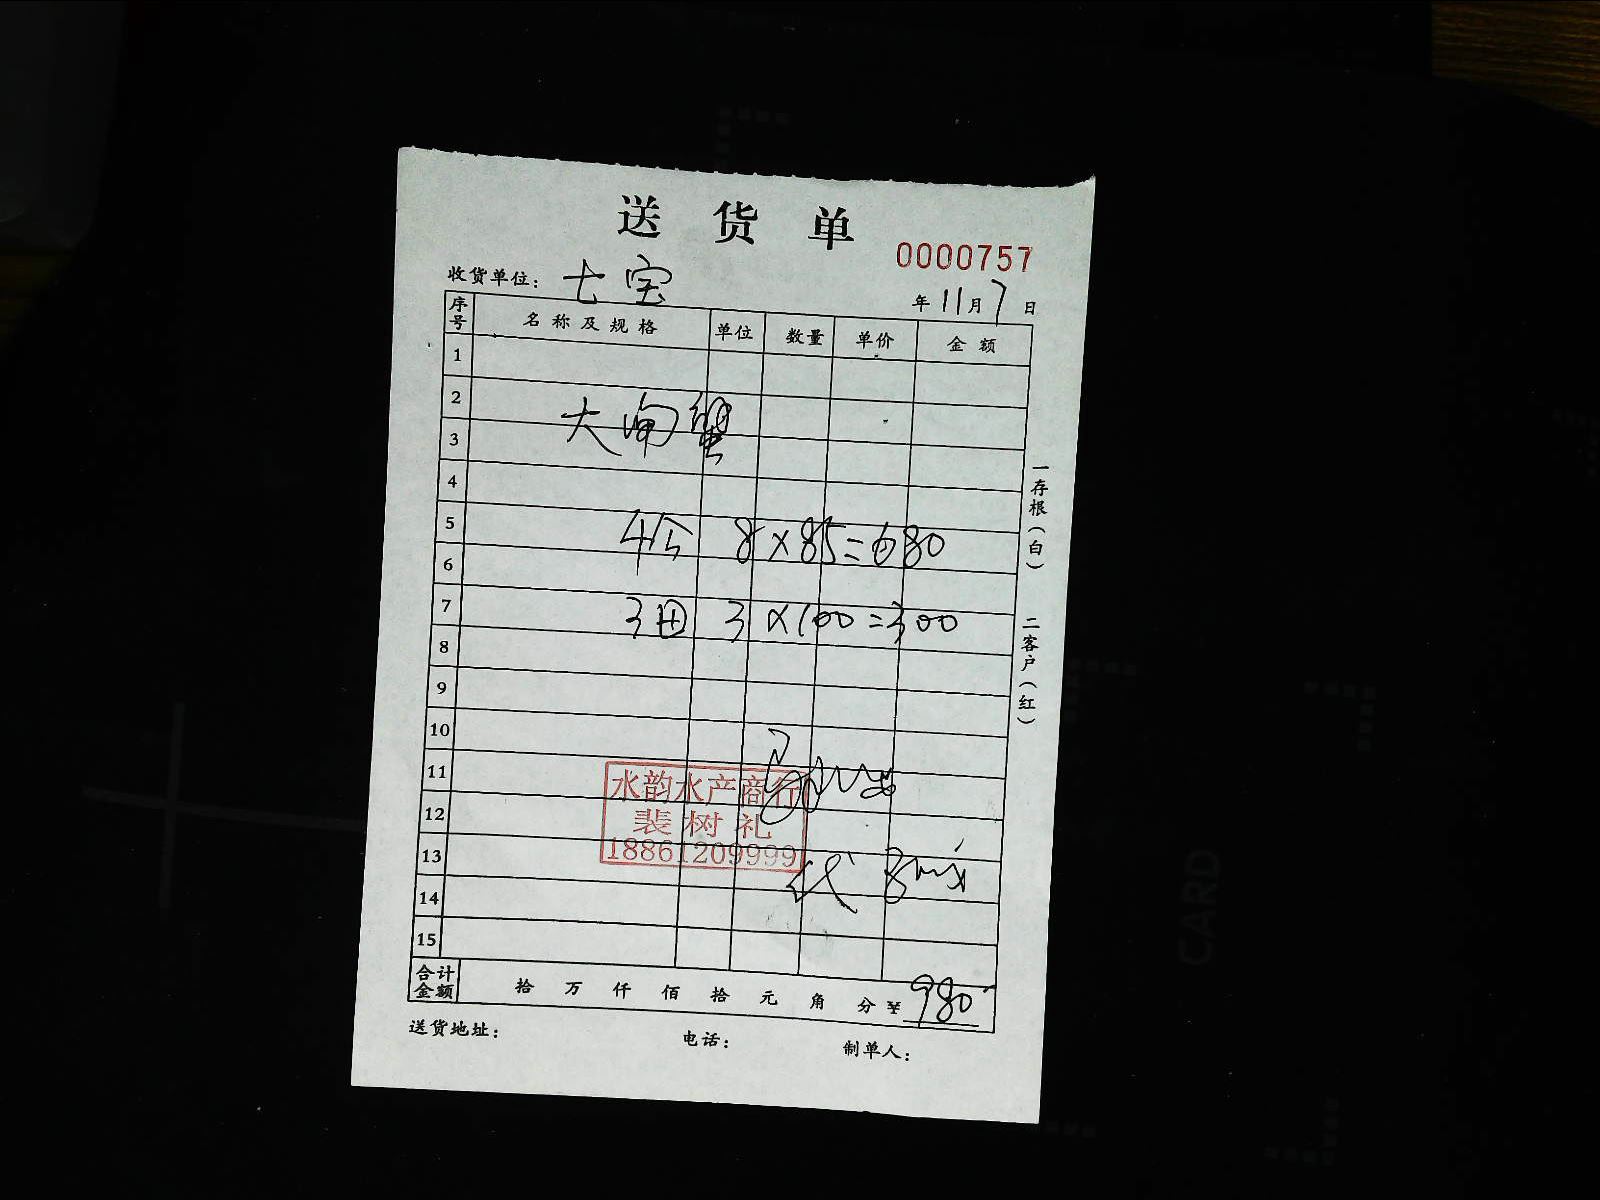 送货单
0000757
收货单位：七宝
年11月7日
序号 名称及规格 单位 数量 单价 金额
1
2
大闸蟹
3
4
5
4公 8×85=680
6
7
3母 3×100=300
8
9
10
11
12
13
14
15
水韵水产商行
裴树礼
18861209999
代
合计金额 拾 万 仟 佰 拾 元 角 分 ¥980
送货地址： 电话： 制单人：
一存根（白）
二客户（红）